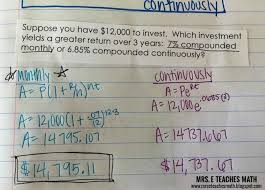 continuously
Suppose you have $12,000 to invest. Which investment
yields a greater return over 3 years: 7% compounded
monthly or 6.85% compounded continuously?
monthly
A = P(1 + r/n)^nt
A = 12,000(1 + .07/12)^12·3
A = 14795.107
$14,795.11
continuously
A = Pe^rt
A = 12,000e^.0685(3)
A = 14737.667
$14,737.67
MRS. E TEACHES MATH
www.mrseteachesmath.blogspot.com